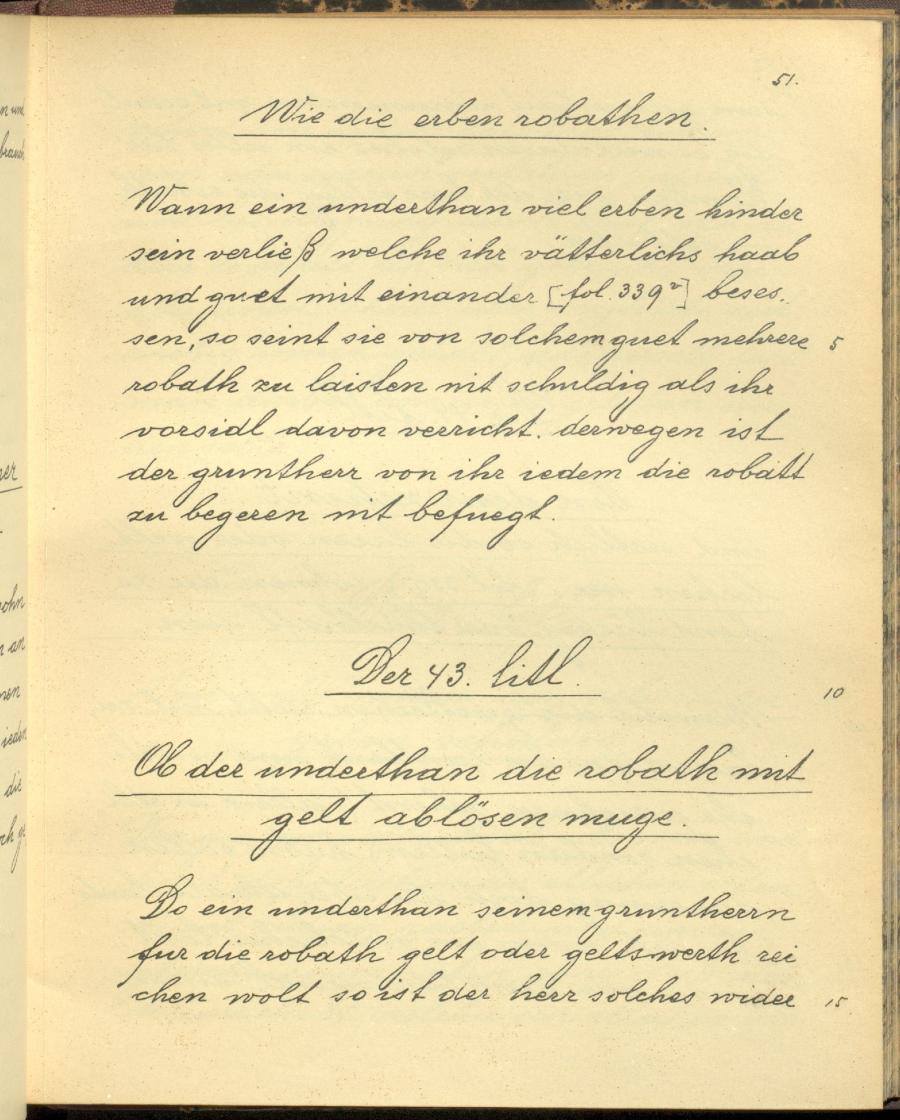 51.
Wie die erben robathen.
Wann ein underthan viel erben hinder
sein verließ welche ihr vätterlichs haab
und guet mit einander [fol. 339v] beses-
sen, so seint sie von solchem guet mehrere 5
robath zu laisten nit schuldig als ihr
vorsidl davon verricht. derwegen ist
der gruntherr von ihr iedem die robatt
zu begeren nit befuegt.
Der 43. titl. 10
Ob der underthan die robath mit
gelt ablösen muge.
Do ein underthan seinem gruntherrn
fur die robath gelt oder geltswerth rei
chen wolt so ist der herr solches wider 15